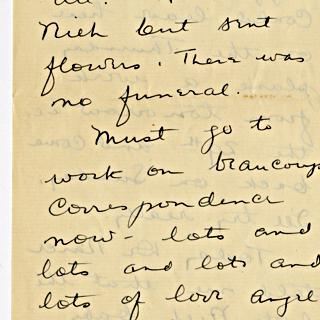 Rich but sent
flowers. There was
no funeral.
Must go to
work on beaucoup
correspondence
now - lots and
lots and lots and
lots of love